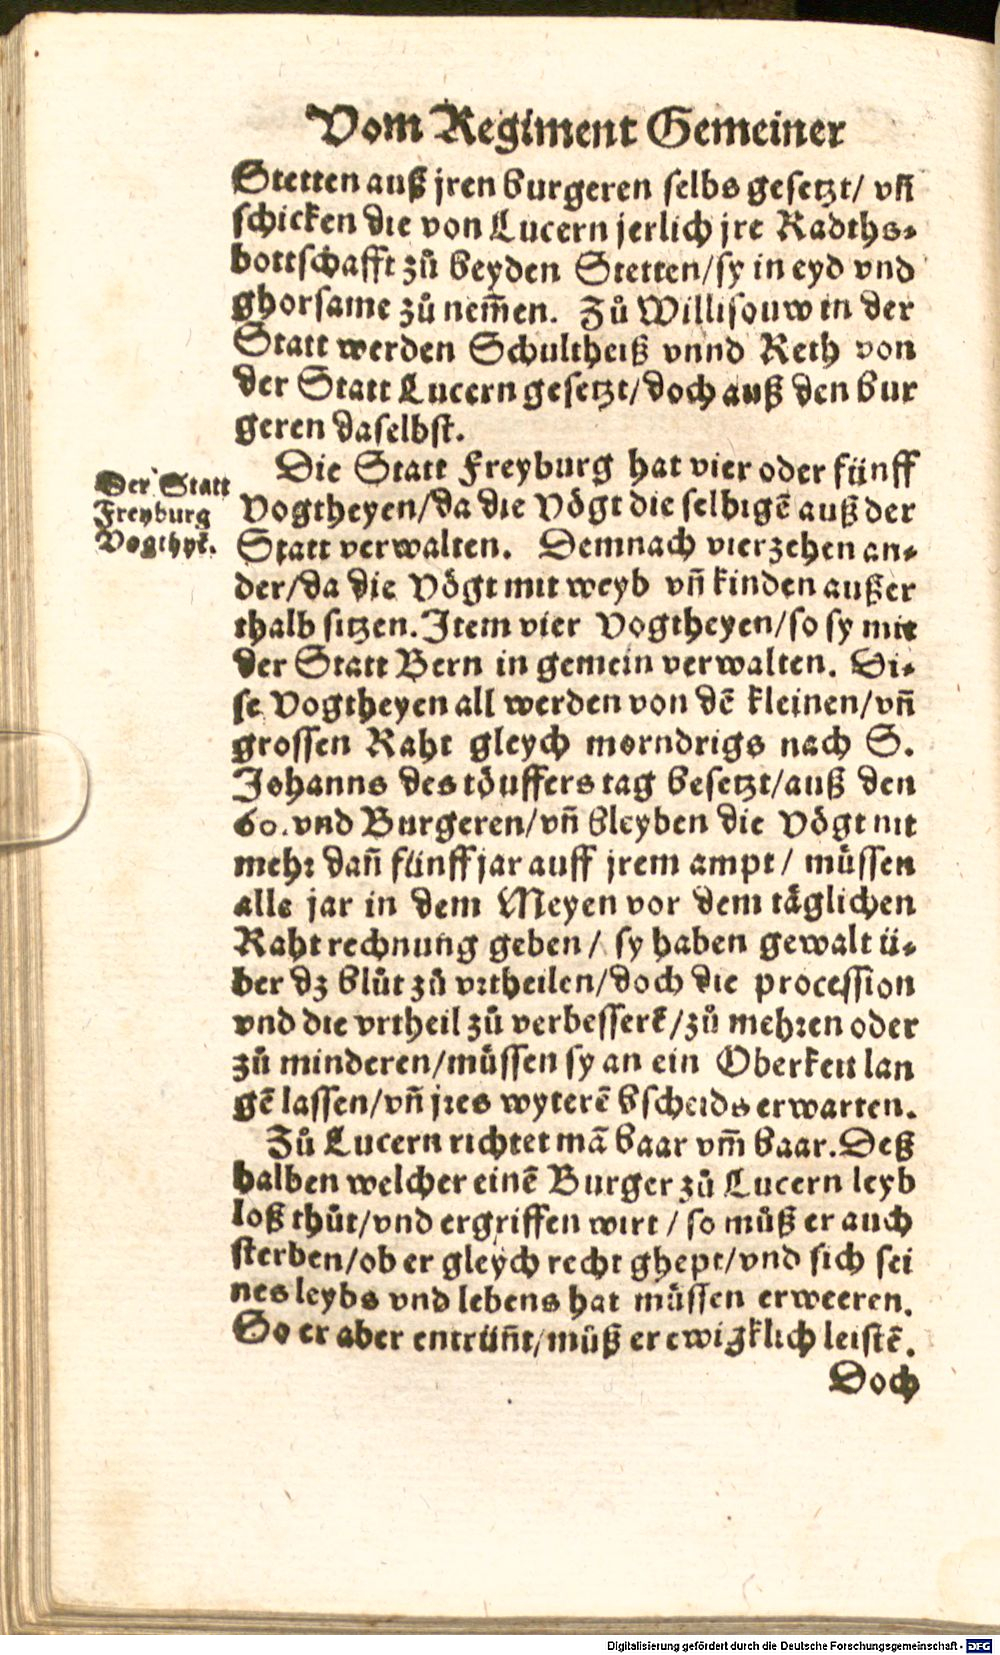 Vom Regiment Gemeiner
Stetten auß jren burgeren selbs gesetzt/ vñ
schicken die von Lucern jerlich jre Radths-
bottschafft zů beyden Stetten/sy in eyd vnd
ghorsame zů nem̃en. Zů Willisouw in der
Statt werden Schultheiß vnnd Reth von
der Statt Lucern gesetzt/doch auß den bur
geren daselbst.
Die Statt Freyburg hat vier oder fünff
Vogtheyen/da die Vögt die selbigẽ auß der
Statt verwalten. Demnach vierzehen an-
der/da die Vögt mit weyb vñ kinden ausser
thalb sitzen. Item vier Vogtheyen/so sy mit
der Statt Bern in gemein verwalten. Di-
se Vogtheyen all werden von dẽ kleinen/vñ
grossen Raht gleych morndrigs nach S.
Johanns des töuffers tag besetzt/auß den
60. vnd Burgeren/vñ bleyben die Vögt nit
mehr dañ fünff jar auff jrem ampt/ müssen
alle jar in dem Meyen vor dem täglichen
Raht rechnung geben/ sy haben gewalt ü-
ber dz blůt zů vrtheilen/doch die procession
vnd die vrtheil zů verbesserẽ/zů mehren oder
zů minderen/müssen sy an ein Oberkeit lan
gẽ lassen/vñ jres wyterẽ bscheids erwarten.
Zů Lucern richtet mã baar vm̃ baar. Deß
halben welcher einẽ Burger zů Lucern leyb
loß thůt/vnd ergriffen wirt/ so můß er auch
sterben/ob er gleych recht ghept/vnd sich sei
nes leybs vnd lebens hat müssen erweeren.
So er aber entrüñt/můß er ewigklich leistẽ.
Doch
Der Statt
Freyburg
Vogthyẽ.
Digitalisierung gefördert durch die Deutsche Forschungsgemeinschaft - DFG